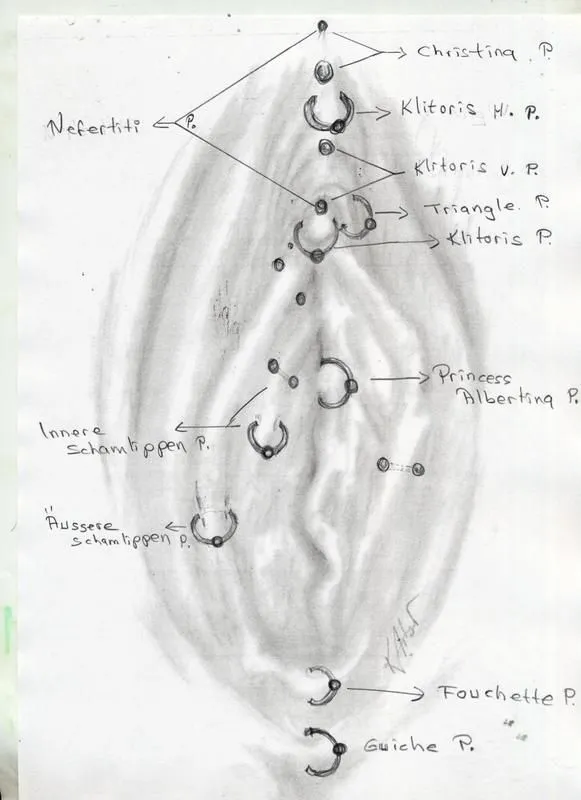 Christina P.
Nefertiti P.
Klitoris H. P.
Klitoris V. P.
Triangle P.
Klitoris P.
Princess
Albertina P.
Innere
Schamlippen P.
Äussere
Schamlippen P.
Fouchette P.
Guiche P.